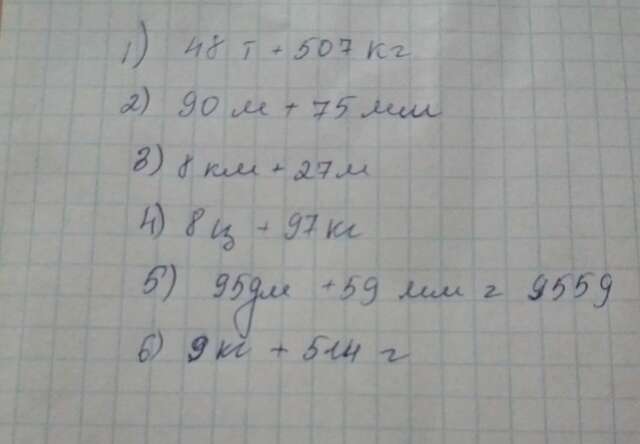 1) 48 т + 507 кг
2) 90 м + 75 мм
3) 8 км + 27 м
4) 8 ц + 97 кг
5) 95 дм + 59 мм = 9559
6) 9 кг + 514 г